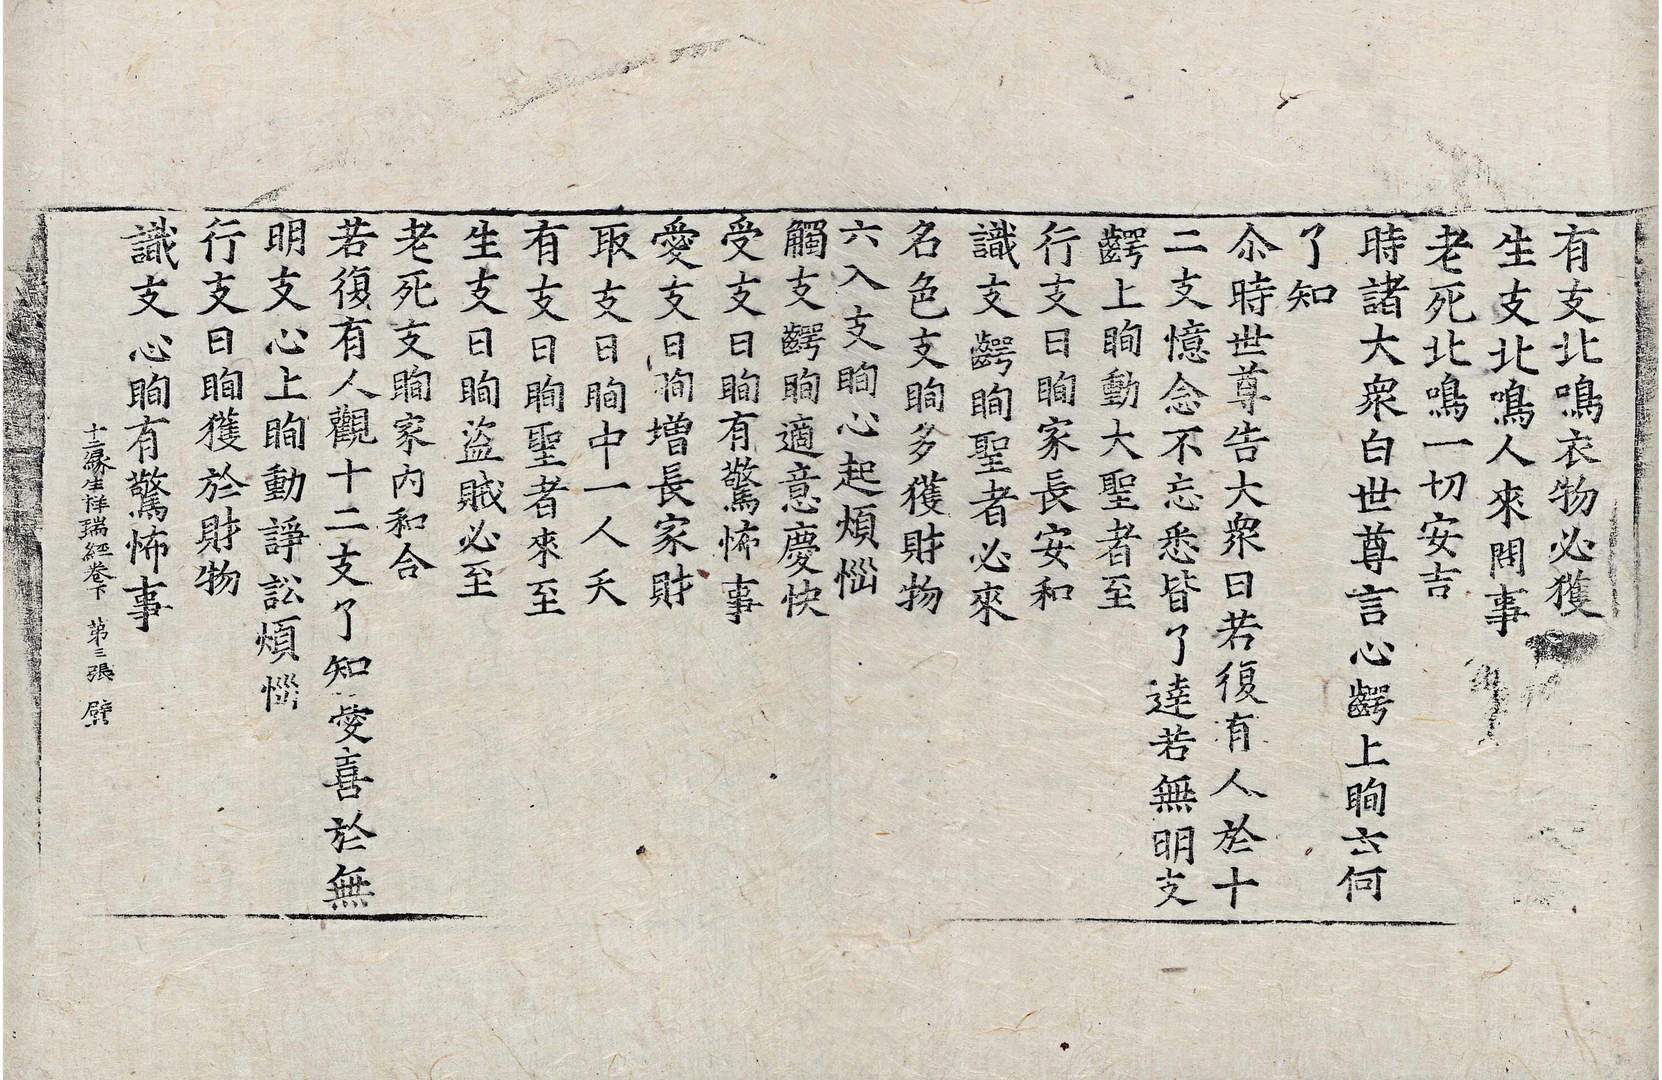 有支北鳴衣物必獲
生支北鳴人來問事
老死北鳴一切安吉
時諸大衆白世尊言心齶上眴云何
了知
尒時世尊告大衆曰若復有人於十
二支憶念不忘悉皆了達若無明支
齶上眴動大聖者至
行支日眴家長安和
識支齶眴聖者必來
名色支眴多獲財物
六入支眴心起煩惱
觸支齶眴適意慶快
受支日眴有驚怖事
愛支日眴增長家財
取支日眴中一人夭
有支日眴聖者來至
生支日眴盜賊必至
老死支眴家內和合
若復有人觀十二支了知愛喜於無
明支心上眴動諍訟煩惱
行支日眴獲於財物
識支心眴有驚怖事
十二緣生祥瑞經卷下 第三張 璧